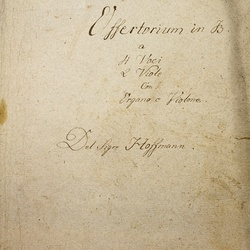 Offertorium in B
a
4 Voci
2 Viole
Con
Organo e Violone
Del Sigre Hoffmann